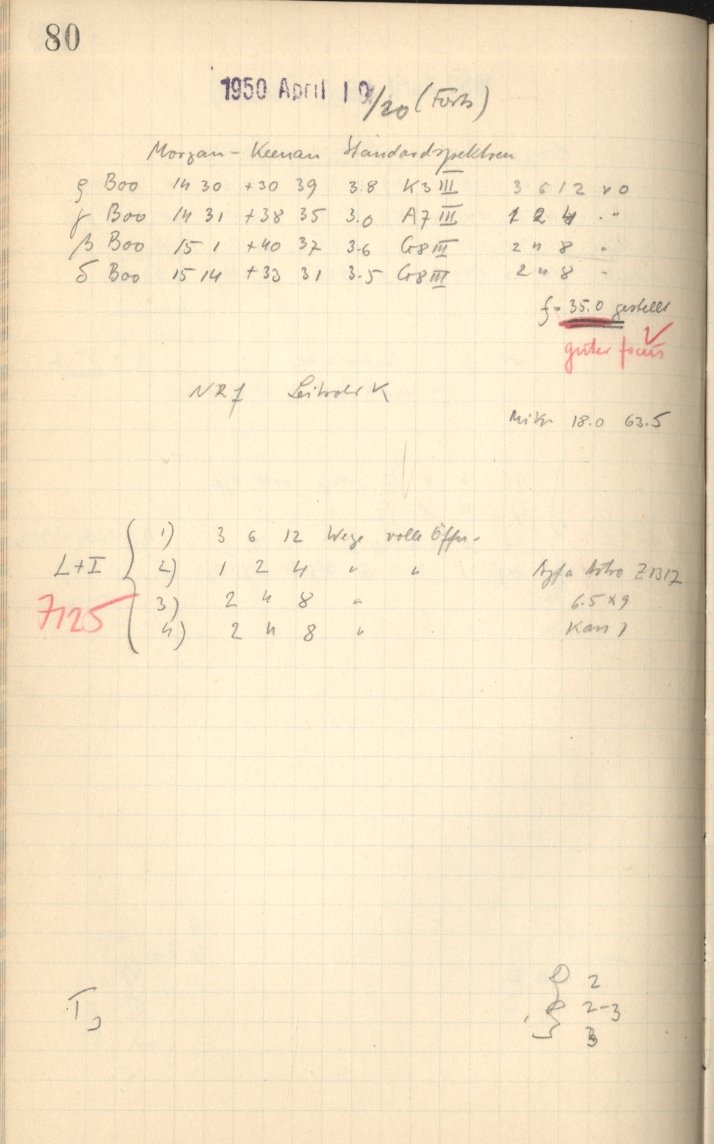 80
1950 April 19/20 (Forts)
Morgan-Keenan Standardspektren
ρ Boo 14 30 +30 39 3.8 K3 III 3 6 12 v O
γ Boo 14 31 +38 35 3.0 A7 III 1 2 4 " "
β Boo 15 1 +40 37 3.6 G8 III 2 4 8 "
δ Boo 15 14 +33 31 3.5 G8 III 2 4 8 "
f = 35.0 gestellt
guter focus
NR 1 Leitrohr K
Mikr 18.0 63.5
1) 3 6 12 Wege volle Öffn.
L+I 2) 1 2 4 " " Agfa Astro Z1317
7125 3) 2 4 8 " 6.5 x 9
4) 2 4 8 " Kass 1
2
2-3
3